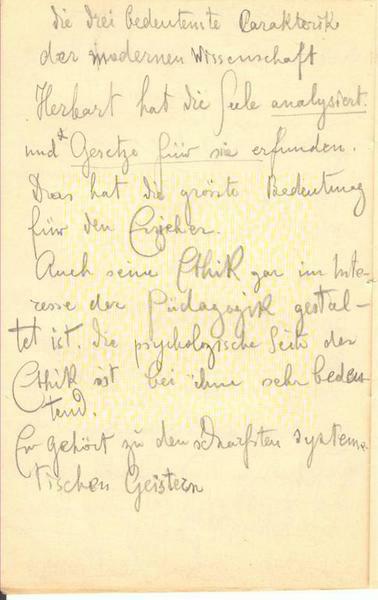 die drei bedeutenste Carakterik
der modernen Wissenschaft
Herbart hat die Seele analysiert.
und Gesetze für sie erfunden.
Das hat die grösste Bedeutung
für den Erzieher.
Auch seine Ethik gar im Inte-
resse der Pädagogik gestal-
tet ist. die psychologische Seite der
Ethik ist bei ihm sehr bedeu-
tend.
Er gehört zu den schärfsten systema-
tischen Geistern